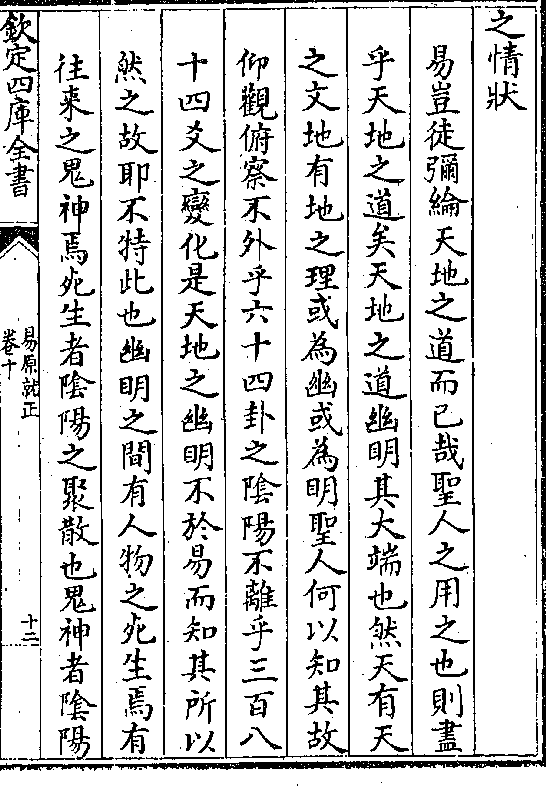 之情狀
易豈徒彌綸天地之道而已哉聖人之用之也則盡
乎天地之道矣天地之道幽明其大端也然天有天
之文地有地之理或為幽或為明聖人何以知其故
仰觀俯察不外乎六十四卦之陰陽不離乎三百八
十四爻之變化是天地之幽明不於易而知其所以
然之故耶不特此也幽明之間有人物之死生焉有
往來之鬼神焉死生者陰陽之聚散也鬼神者陰陽
欽定四庫全書
易原就正
卷十
十二